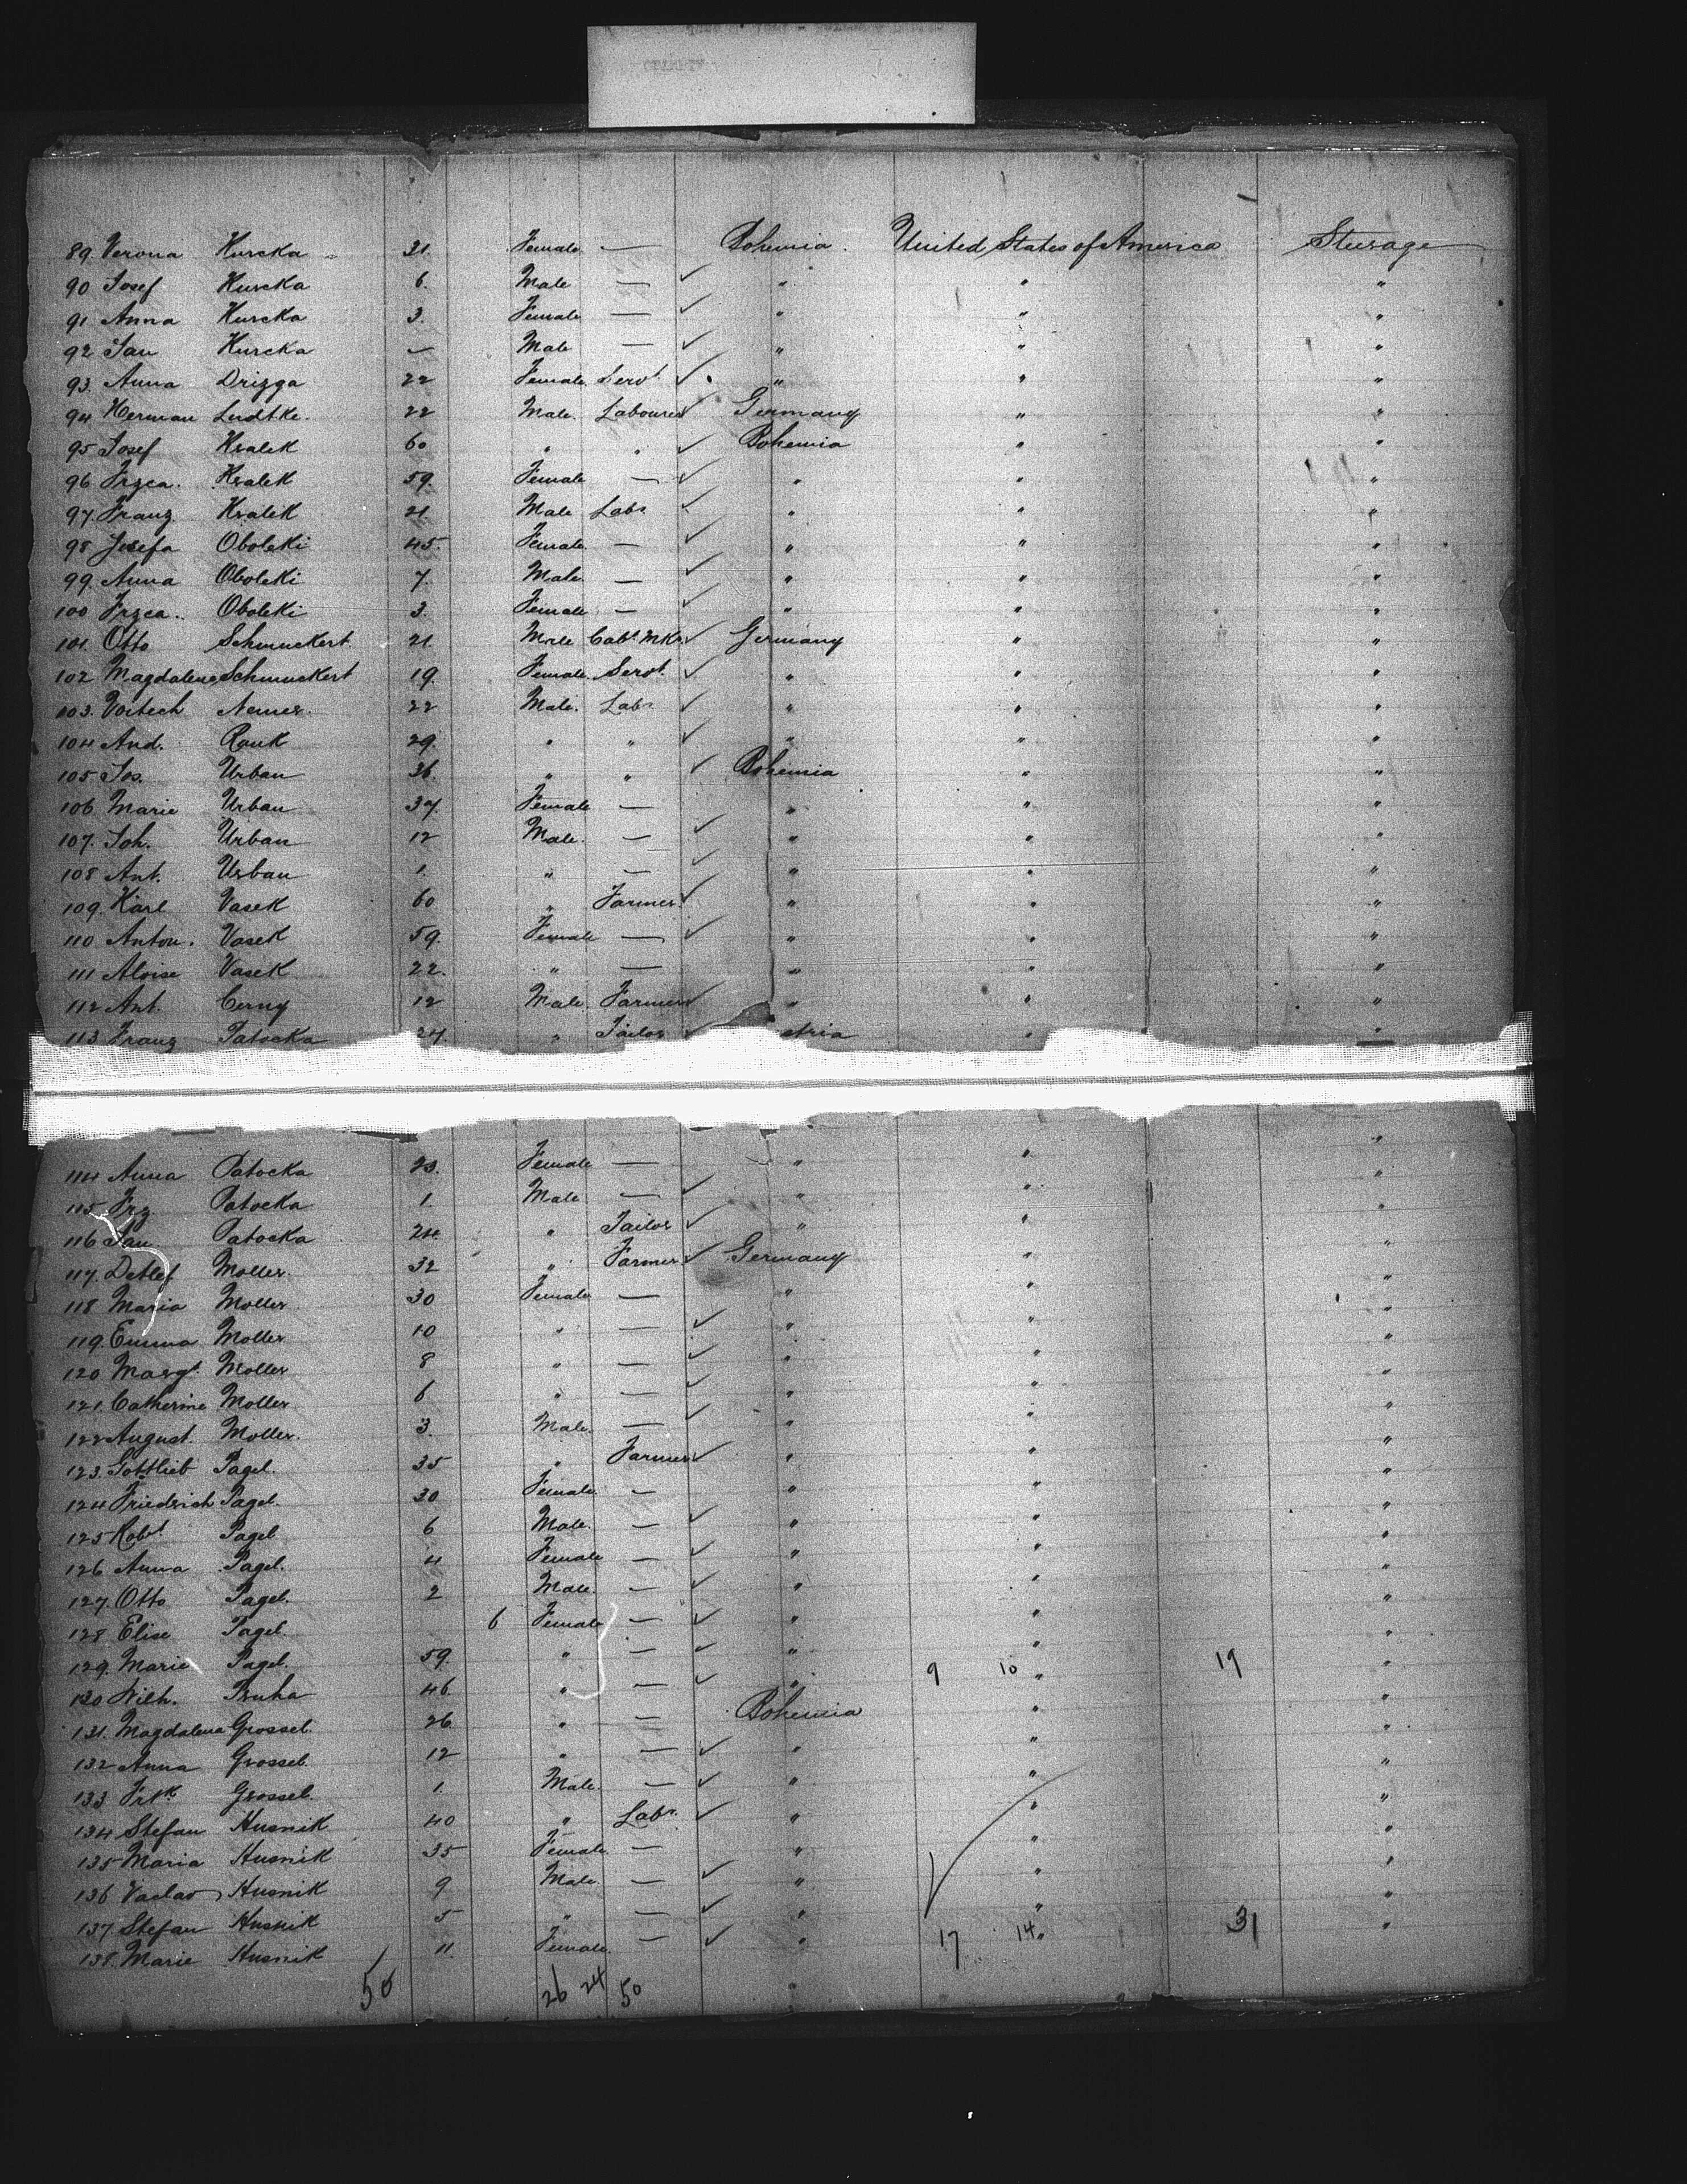 89. Verona Kurcka 31. Female — Bohemia. United States of America Steerage
90 Josef Kurcka 6. Male — ✓ " " "
91 Anna Kurcka 3. Female — ✓ " " "
92 Jan Kurcka — Male — ✓ " " "
93. Anna Drizga 22 Female. Servt. ✓ " " "
94 Herman Ludtke. 22 Male. Labourer ✓ Germany " "
95 Josef Kralek 60 " " ✓ Bohemia " "
96 Frzca. Kralek 59. Female — ✓ " " "
97. Franz Kralek 21 Male Labr ✓ " " "
98 Josefa Oboleki 45. Female. — ✓ " " "
99. Anna Oboleki 7. Male. — ✓ " " "
100 Frzca.. Oboleki 3. Female — ✓ " " "
101. Otto Schmuckert. 21. Male Cabt. Mkr. ✓ Germany " "
102 Magdalene Schmuckert 19. Female. Servt. ✓ " " "
103. Voitech Nemer. 22 Male. Labr ✓ " " "
104 And. Rauk 29. " " ✓ " " "
105 Jos. Urban 36. " " ✓ Bohemia " "
106 Marie Urban 37. Female — " " "
107. Joh. Urban 12 Male. — ✓ " " "
108 Ant. Urban 1. " — ✓ " " "
109. Karl Vasek 60 " Farmer ✓ " " "
110 Anton. Vasek 59. Female — ✓ " " "
111 Aloise Vasek 22. " — " " "
112 Ant. Cerny 12 Male. Farmer ✓ " " "
113 Franz Patocka 27. " Tailor ✓ stria " "
114 Anna Patocka 23. Female — " " "
115 Frz. Patocka 1. Male — ✓ " " "
116 Jan Patocka 24. " Tailor ✓ " " "
117. Detlef Moller. 32 " Farmer ✓ Germany " "
118 Maria Moller. 30 Female — " " "
119. Emma Moller 10 " — ✓ " " "
120 Margt. Moller 8 " — ✓ " " "
121. Catherine Moller 6 " — ✓ " " "
122 August. Moller. 3. Male. — ✓ " " "
123. Gottlieb Pagel. 35 " Farmer ✓ " " "
124 Friedrich Pagel. 30 Female. — " " "
125 Robt. Pagel 6 Male. — ✓ " " "
126 Anna Pagel. 4 Female — ✓ " " "
127. Otto Pagel. 2 Male. — ✓ " " "
128 Elise Pagel. 6 Female — ✓ " " "
129. Marie Pagel. 59. " — ✓ " 9 10 " 19 "
130 Wilh. Pruha 46. " — ✓ " " "
131. Magdalena Grossel. 26 " — Bohemia " "
132 Anna Grossel. 12 " — ✓ " " "
133 Frk. Grossel. 1. Male. — ✓ " " "
134 Stefan Husnik 40 " Labr. ✓ " " "
135 Maria Husnik 35 Female — " " "
136 Vaclav Husnik 9 Male — ✓ " " "
137. Stefan Husnik 5 " — ✓ " " "
138. Marie Husnik 11. Female. — ✓ " 17 14 " 31 "
50 26 24 50